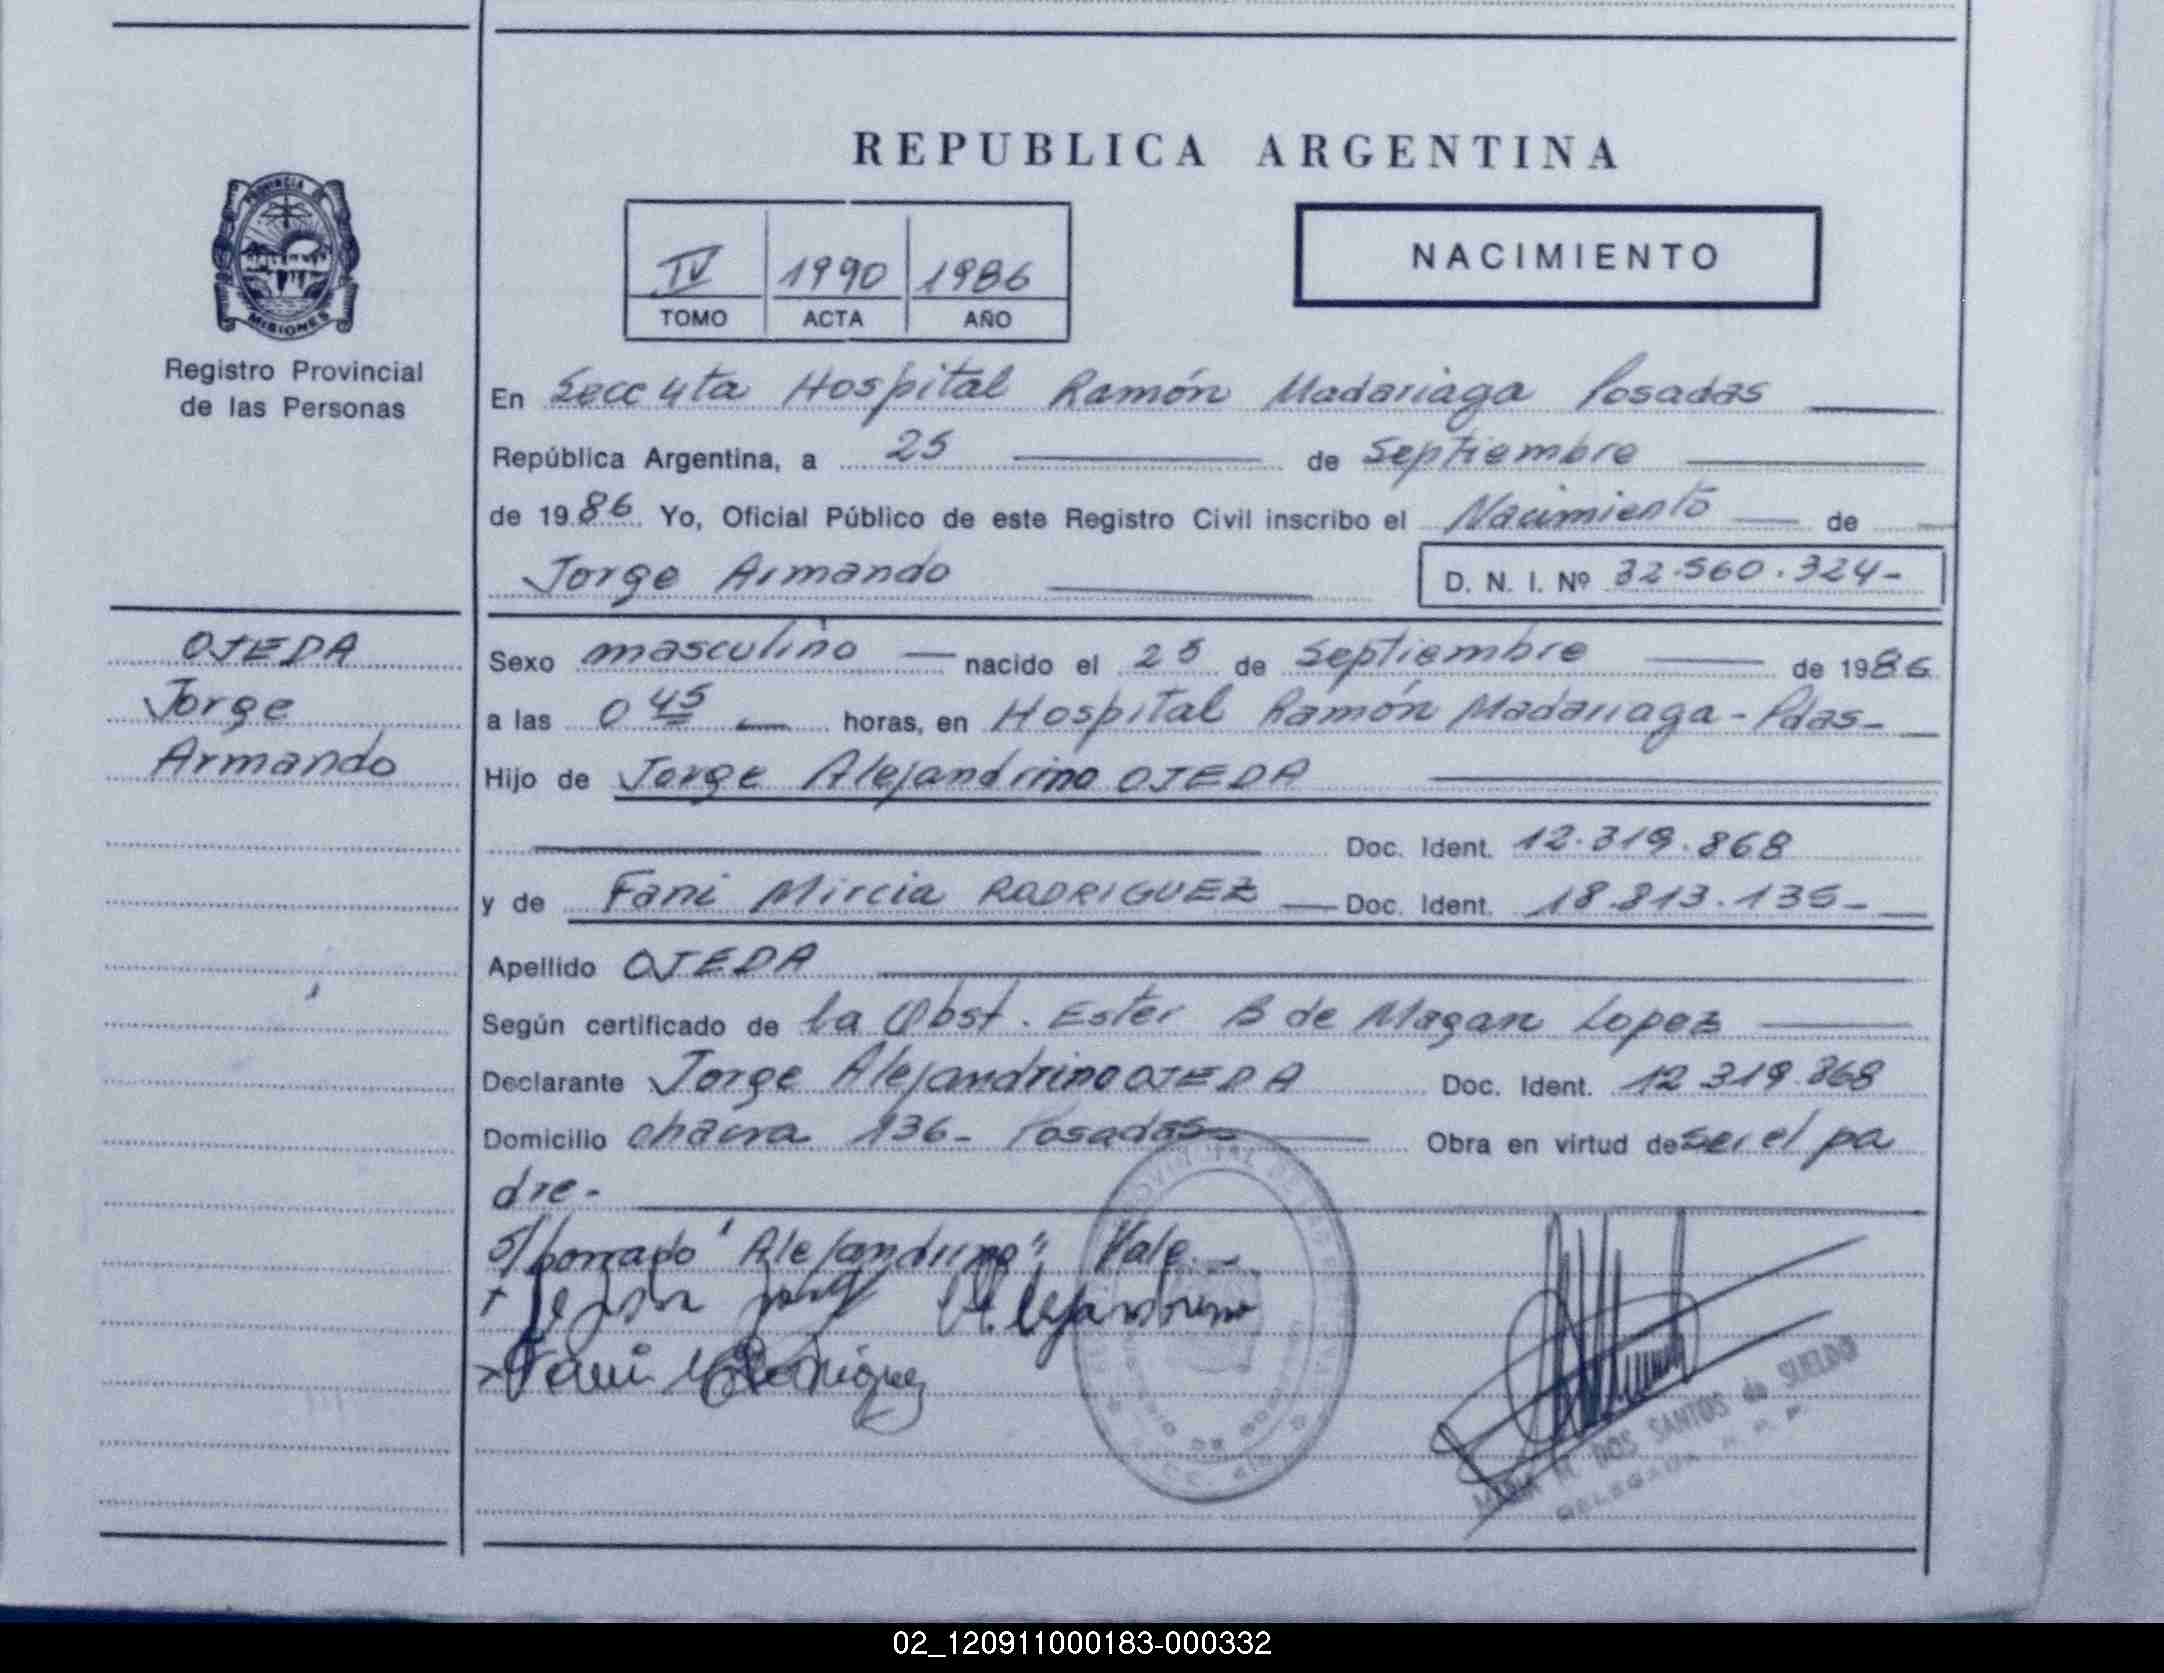 REPUBLICA ARGENTINA
PROVINCIA DE
MISIONES
Registro Provincial
de las Personas
IV 1990 1986
TOMO ACTA AÑO
NACIMIENTO
En Secc 4ta Hospital Ramón Madariaga Posadas
República Argentina, a 25 de Septiembre
de 1986 Yo, Oficial Público de este Registro Civil inscribo el Nacimiento de
Jorge Armando D. N. I. Nº 32.560.324-
OJEDA
Jorge
Armando
Sexo masculino nacido el 25 de Septiembre de 1986
a las 0 45 horas, en Hospital Ramón Madariaga - Pdas-
Hijo de Jorge Alejandrino OJEDA
Doc. Ident. 12.319.868
y de Fani Mircia RODRIGUEZ Doc. Ident. 18.813.135-
Apellido OJEDA
Según certificado de la Obst. Ester B de Magan Lopez
Declarante Jorge Alejandrino OJEDA Doc. Ident. 12 319.868
Domicilio chacra 136- Posadas- Obra en virtud de ser el pa
dre.
s/borrado "Alejandrino" Vale
Alejandrino
Fani Rodriguez
DOS SANTOS de SUELDO
DELEGADA
02_120911000183-000332